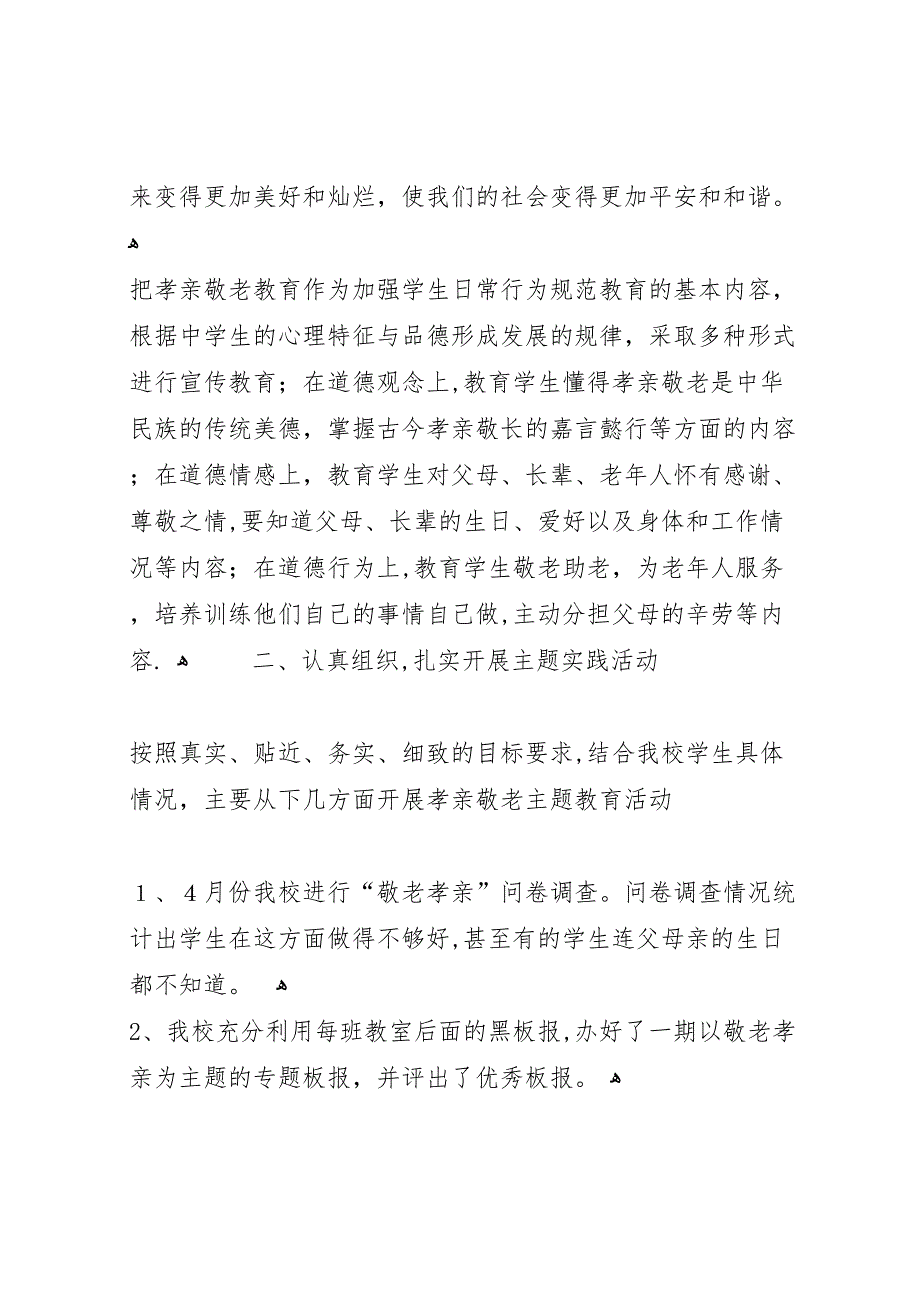 来变得更加美好和灿烂，使我们的社会变得更加平安和和谐。
ﻫ
把孝亲敬老教育作为加强学生日常行为规范教育的基本内容，
根据中学生的心理特征与品德形成发展的规律，采取多种形式
进行宣传教育；在道德观念上,教育学生懂得孝亲敬老是中华
民族的传统美德，掌握古今孝亲敬长的嘉言懿行等方面的内容
；在道德情感上，教育学生对父母、长辈、老年人怀有感谢、
尊敬之情,要知道父母、长辈的生日、爱好以及身体和工作情
况等内容；在道德行为上,教育学生敬老助老，为老年人服务
，培养训练他们自己的事情自己做,主动分担父母的辛劳等内
容. ﻫ 二、认真组织,扎实开展主题实践活动
按照真实、贴近、务实、细致的目标要求,结合我校学生具体
情况，主要从下几方面开展孝亲敬老主题教育活动
１、４月份我校进行“敬老孝亲”问卷调查。问卷调查情况统
计出学生在这方面做得不够好,甚至有的学生连父母亲的生日
都不知道。 ﻫ
2、我校充分利用每班教室后面的黑板报,办好了一期以敬老孝
亲为主题的专题板报，并评出了优秀板报。ﻫ